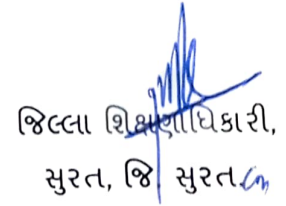 જિલ્લા શિક્ષણાધિકારી,
સુરત, જિ. સુરત.